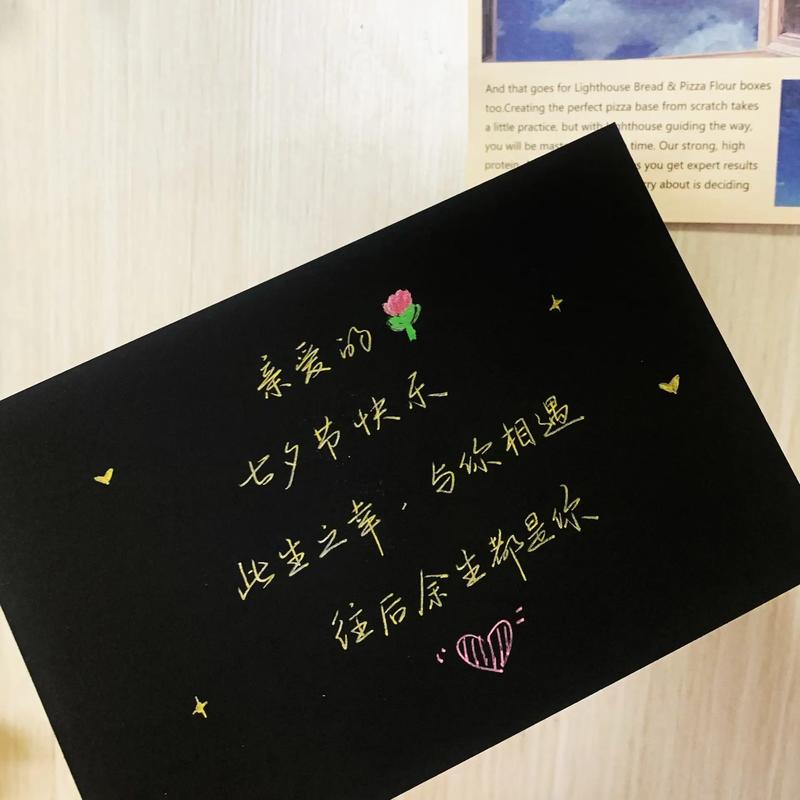 And that goes for Lighthouse Bread & Pizza Flour boxes
too.Creating the perfect pizza base from scratch takes
a little practice, but with Lighthouse guiding the way,
you will be time. Our strong, high
protein you get expert results
about is deciding
亲爱的
七夕节快乐
此生之幸，与你相遇
往后余生都是你